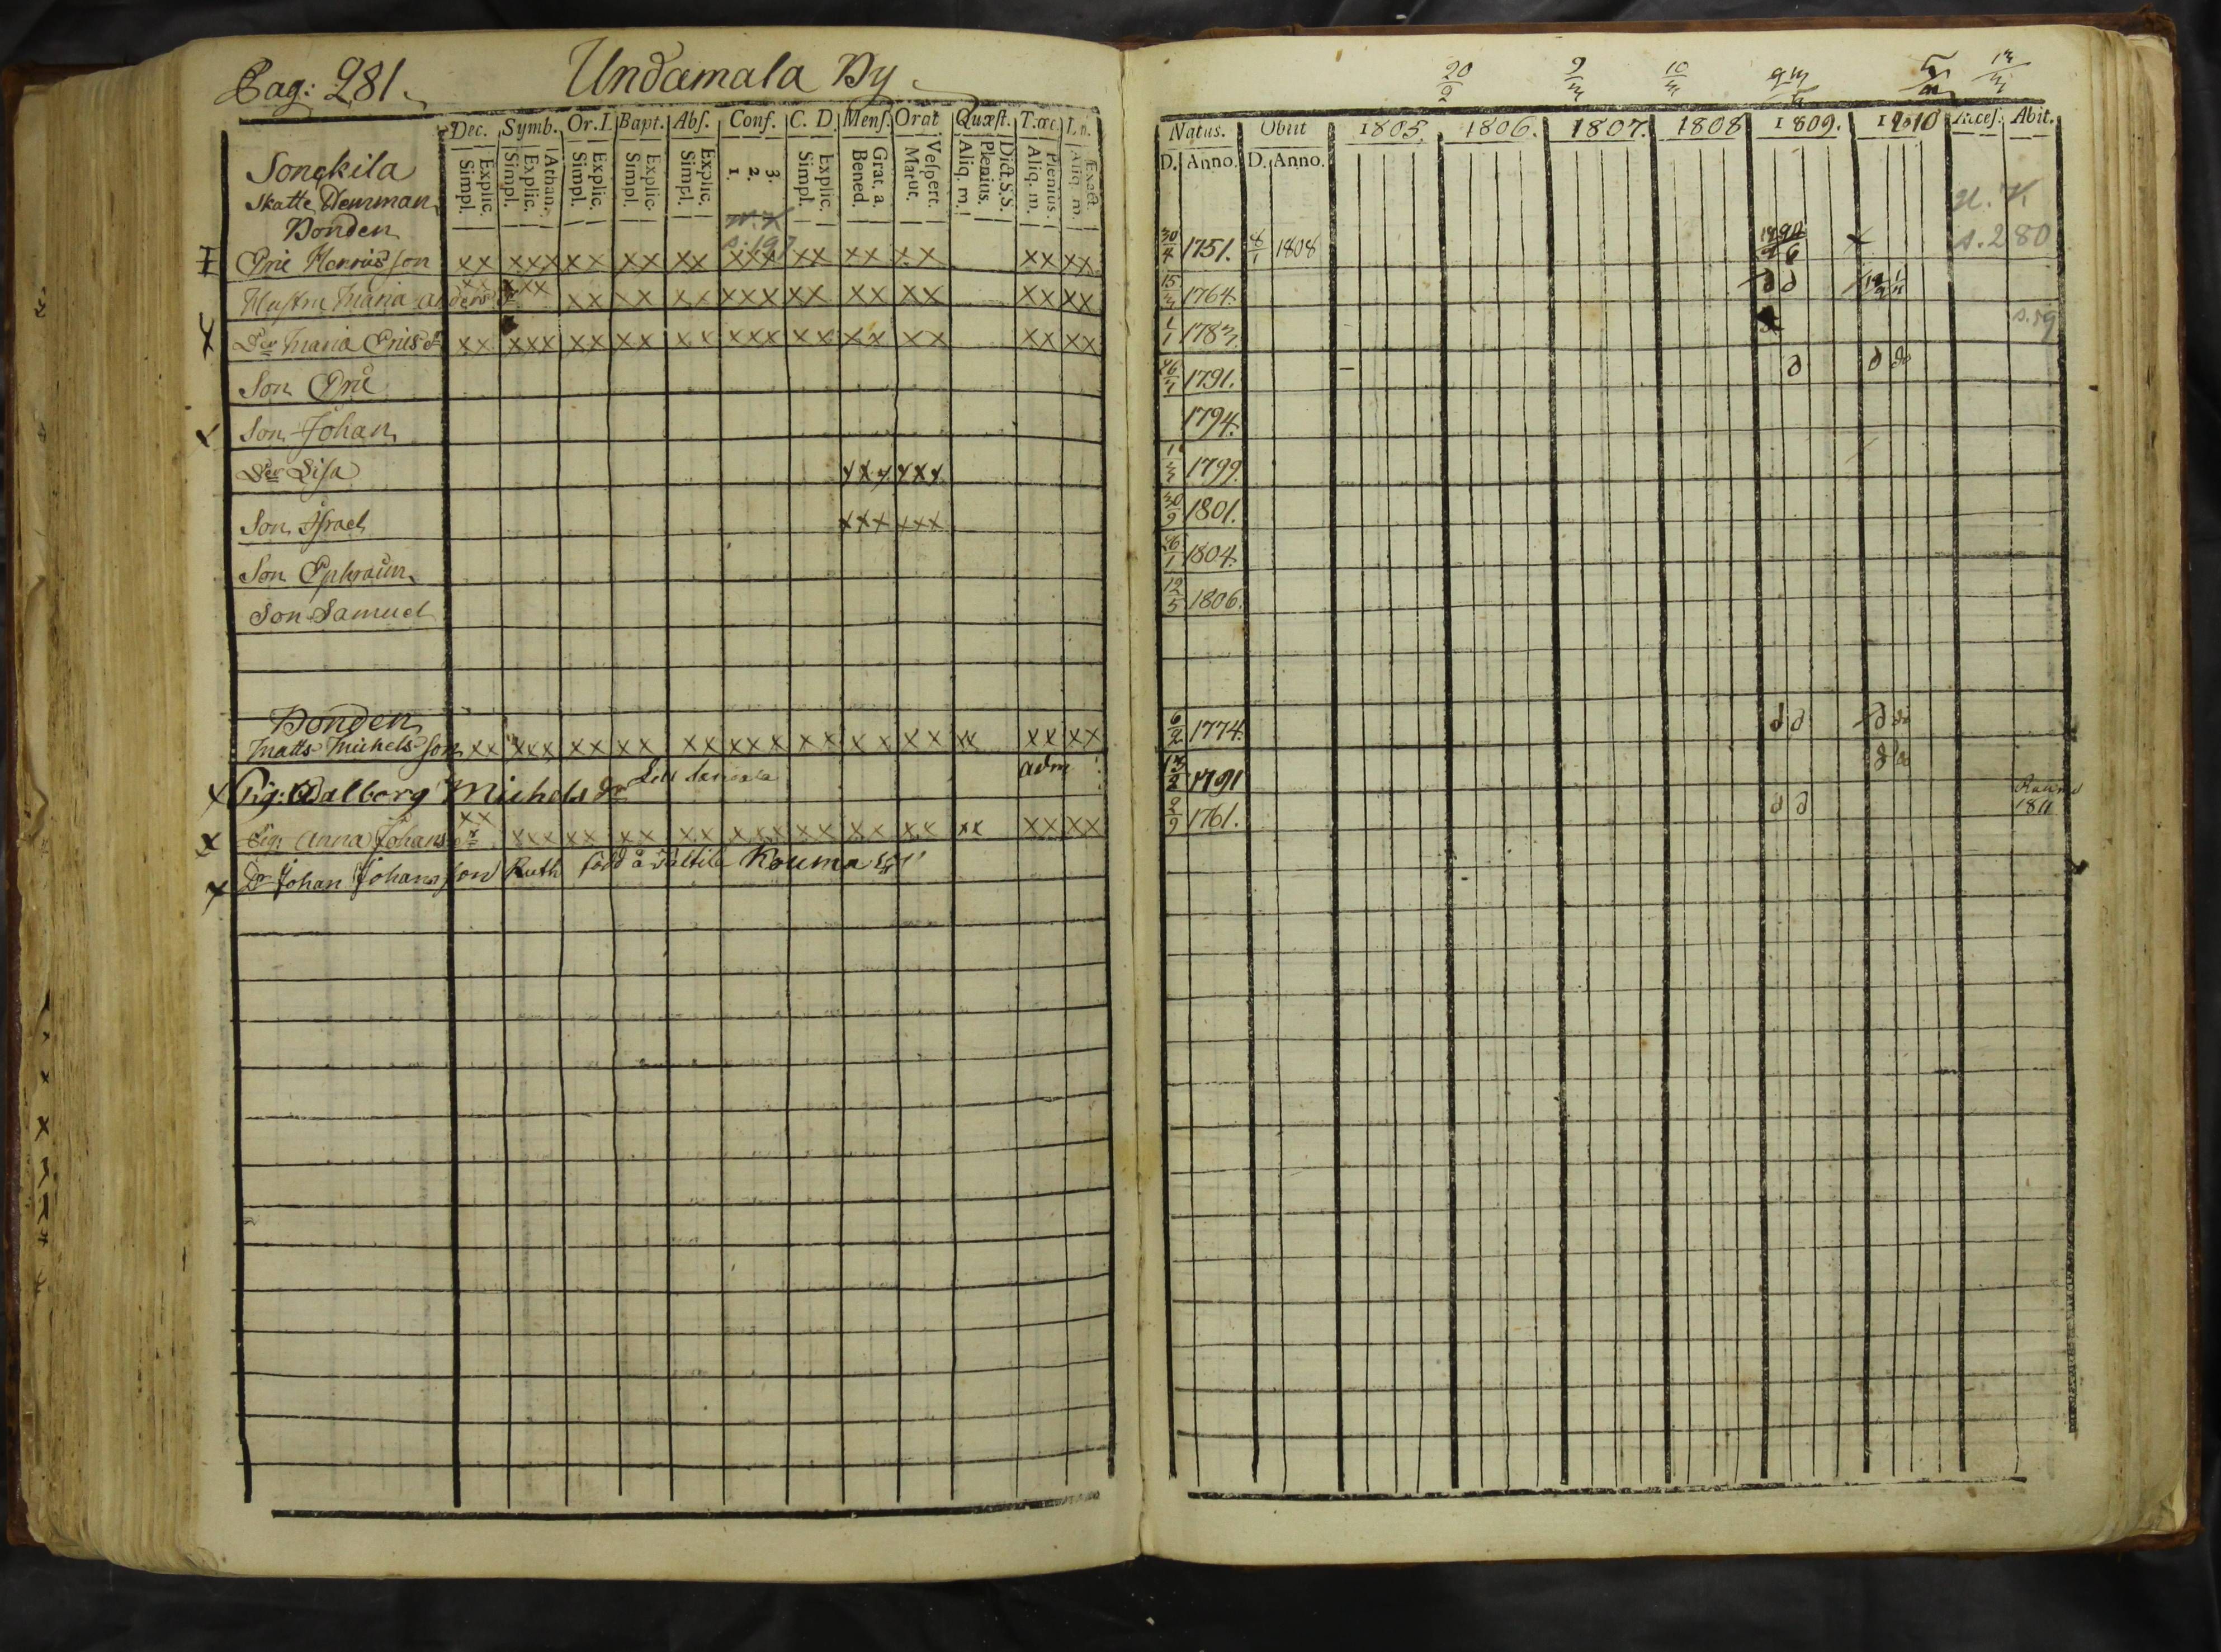 Pag: 281. Undamala By
Dec. Symb. Or.I. Bapt. Abs. Conf. C. D. Mens. Orat Quæst. T.œc. I. n.
Explic. Simpl. Athan. Explic. Simpl. Explic. Simpl. Explic. Simpl. Explic. Simpl. 3. 2. 1. Explic. Simpl. Grat. a. Bened. Vespert. Matut. Dict. S.S. Plenius. Aliq. m. Plenius. Aliq. m. Exact. Aliq. m.
Songkila
Skatte Hemman
Bonden
s. 197
Eric son xx xxx xx xx xx xxx xx xx xx xx xx
Hustru Maria Anders dr xx xxx xx xx xx xxx xx xx xx xx xx
Dr Maria Erics dr xx xxx xx xx xx xxx xx xx xx xx xx
Son Eric
Son Johan
Dr Lisa xxx xxx
Son Israel xxx xxx
Son Ephraim
Son Samuel
Bonden
Matts Michels son xx xxx xx xx xx xxx xx xx xx xx xx xx
Pig: Walborg Michels dr adm
Pig: Anna Johans dr xx xxx xx xx xx xxx xx xx xx xx xx xx
Dr Johan Johansson Ruth född å Rouma
20/2 9/3 10/3
Natus. Obiit 1805. 1806. 1807. 1808 1809. 1810 Acces. Abit.
D. Anno. D. Anno.
30/4 1751. 8/1 1808 s. 280
15/3 1764.
1/1 1783. s. 59
26/4 1791. d d do
1794.
1/3 1799.
30/9 1801.
26/1 1804.
12/5 1806.
6/2 1774. d d d do
1791
2/9 1761. d d 1811